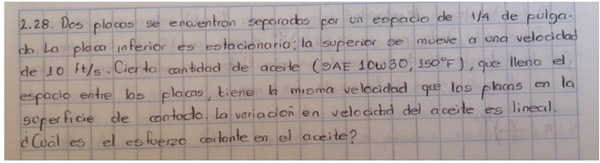 2.28. Dos placas se encuentran separadas por un espacio de 1/4 de pulga-
da. La placa inferior es estacionaria; la superior se mueve a una velocidad
de 10 ft/s. Cierta cantidad de aceite (SAE 10W30, 150°F), que llena el
espacio entre las placas, tiene la misma velocidad que las placas en la
superficie de contacto. La variación en velocidad del aceite es lineal.
¿Cuál es el esfuerzo cortante en el aceite?